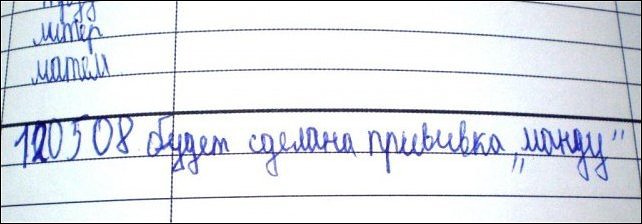 труд
литер
матем
120508 будет сделана прививка „манду"